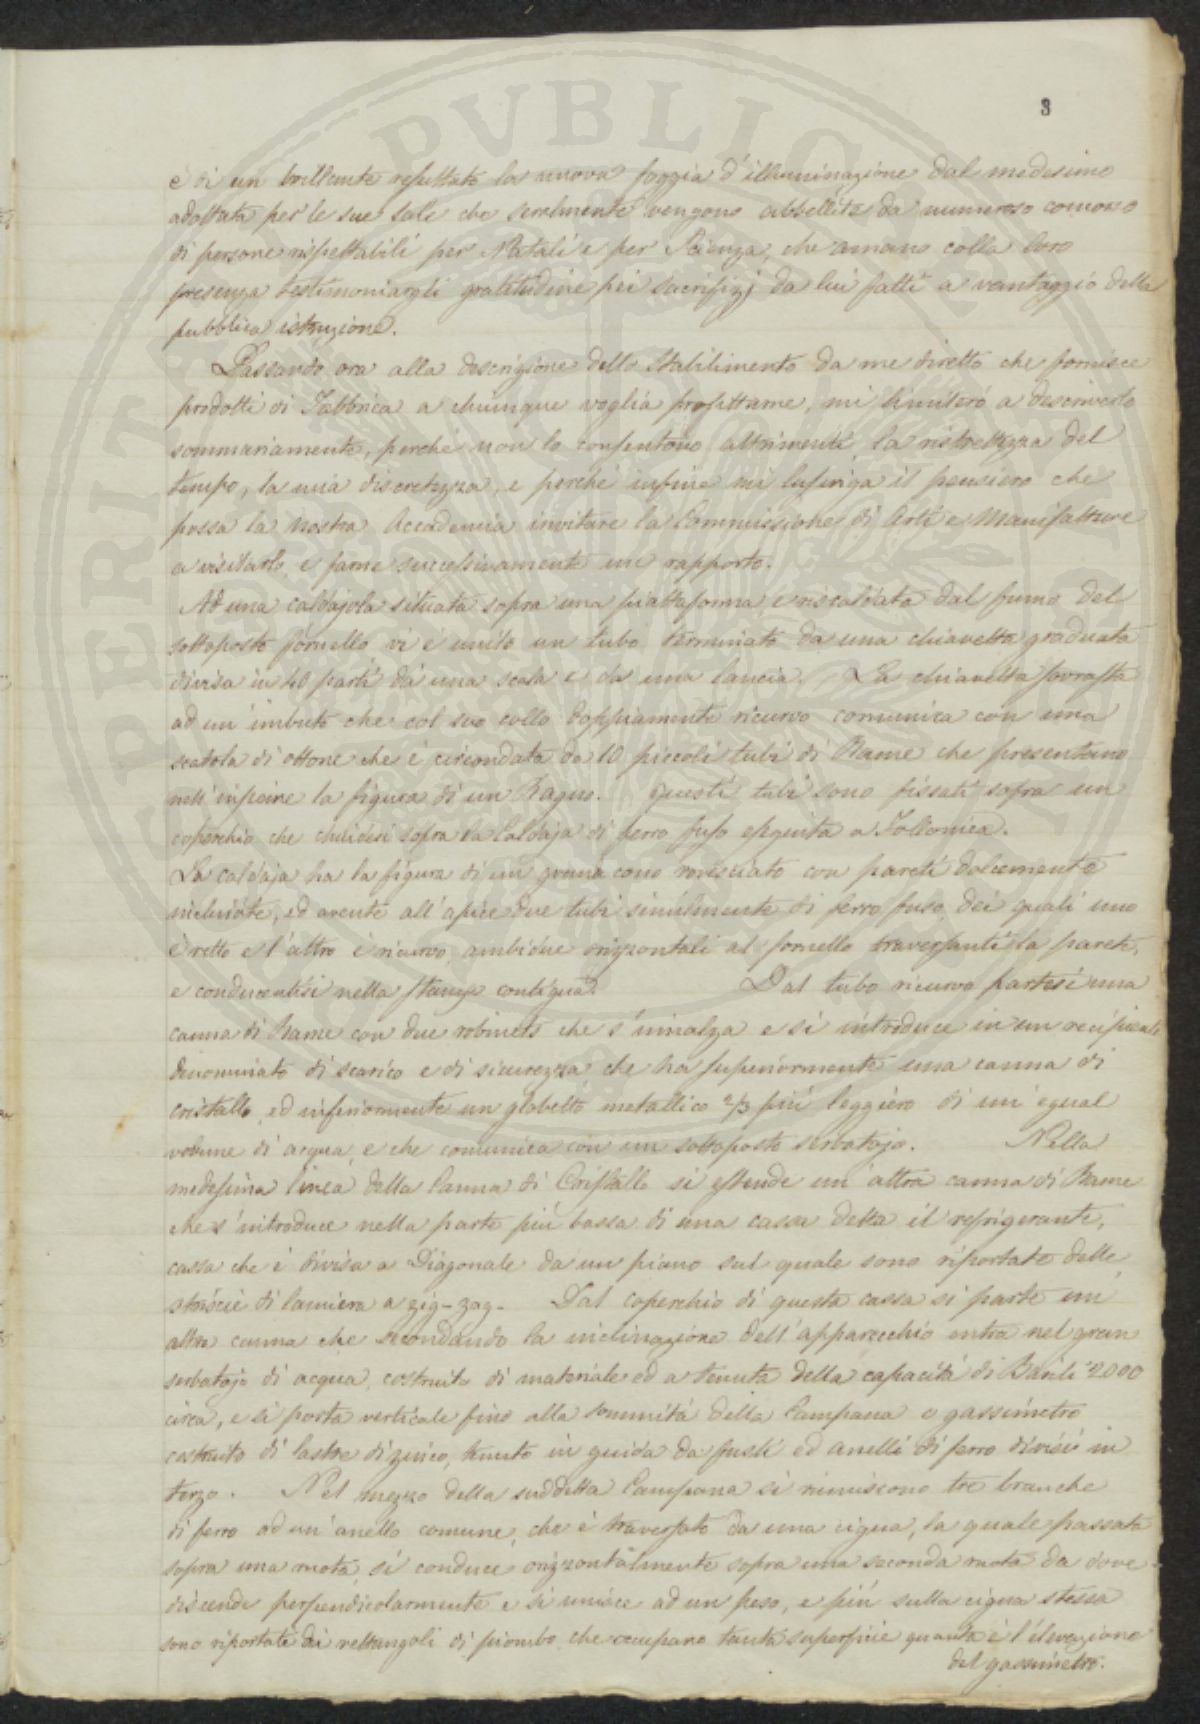 3
è di un brillante resultato la nuova foggia d'illuminazione dal medesimo
adottata per le sue sale che seralmente vengono abbellite da numeroso concorso
di persone rispettabili per Natali e per Scienza, che amano colla loro
presenza testimoniargli gratitudine pei sacrifizj da lui fatti a vantaggio della
pubblica istruzione.
Passando ora alla descrizione dello Stabilimento da me diretto che fornisce
prodotti di Fabbrica a chiunque voglia profittarne, mi limiterò a descriverlo
sommariamente, perchè non lo consentono altrimenti la ristrettezza del
tempo, la mia discretezza, e perchè infine mi lusinga il pensiero che
possa la nostra Accademia invitare la Commissione di Arti e Manifatture
a visitarlo, e farne successivamente un rapporto.
Ad una caldajola situata sopra una piattaforma, e riscaldata dal fumo del
sottoposto fornello vi è unito un tubo terminato da una chiavetta graduata
divisa in 40 parti da una scala e da una lancia. La chiavetta sovrasta
ad un' imbuto che col suo collo doppiamente ricurvo comunica con una
scatola di ottone che è circondata da 10 piccoli tubi di Rame che presentano
nell' insieme la figura di un Ragno. Questi tubi sono fissati sopra un
coperchio che chiudesi sopra la Caldaja di ferro fuso eseguita a Follonica.
La caldaja ha la figura di un gran cono rovesciato con pareti dolcemente
inclinate, ed avente all' apice due tubi similmente di ferro fuso, dei quali uno
è retto e l'altro è ricurvo ambidue orizzontali al fornello traversanti la parete,
e conducentisi nella stanza contigua. Dal tubo ricurvo partesi una
canna di Rame con due robinets che s' innalza e si introduce in un recipiente
denominato di scarico e di sicurezza che ha superiormente una canna di
cristallo, ed inferiormente un globetto metallico 2/3 più leggiero di un egual
volume di acqua, e che comunica con un sottoposto serbatojo. Nella
medesima linea della Canna di Cristallo si estende un' altra canna di Rame
che s' introduce nella parte più bassa di una cassa detta il refrigerante,
cassa che è divisa a Diagonale da un piano sul quale sono riportate delle
striscie di lamiera a zig-zag. Dal coperchio di questa cassa si parte un'
altra canna che secondando la inclinazione dell' apparecchio entra nel gran
serbatojo di acqua, costruito di materiale ed a tenuta della capacità di Barili 2000
circa, e si porta verticale fino alla sommità della Campana o gassimetro
costruito di lastre di zinco, tenuto in guida da fusti ed anelli di ferro divisi in
terzo. Nel mezzo della suddetta Campana si riuniscono tre branche
di ferro ad un' anello comune, che è traversato da una cigna, la quale passata
sopra una ruota, si conduce orizzontalmente sopra una seconda ruota da dove
discende perpendicolarmente e si unisce ad un peso, e più sulla cigna stessa
sono riportati dei rettangoli di piombo, che occupano tanta superficie quanta è l' elevazione
del gassimetro.